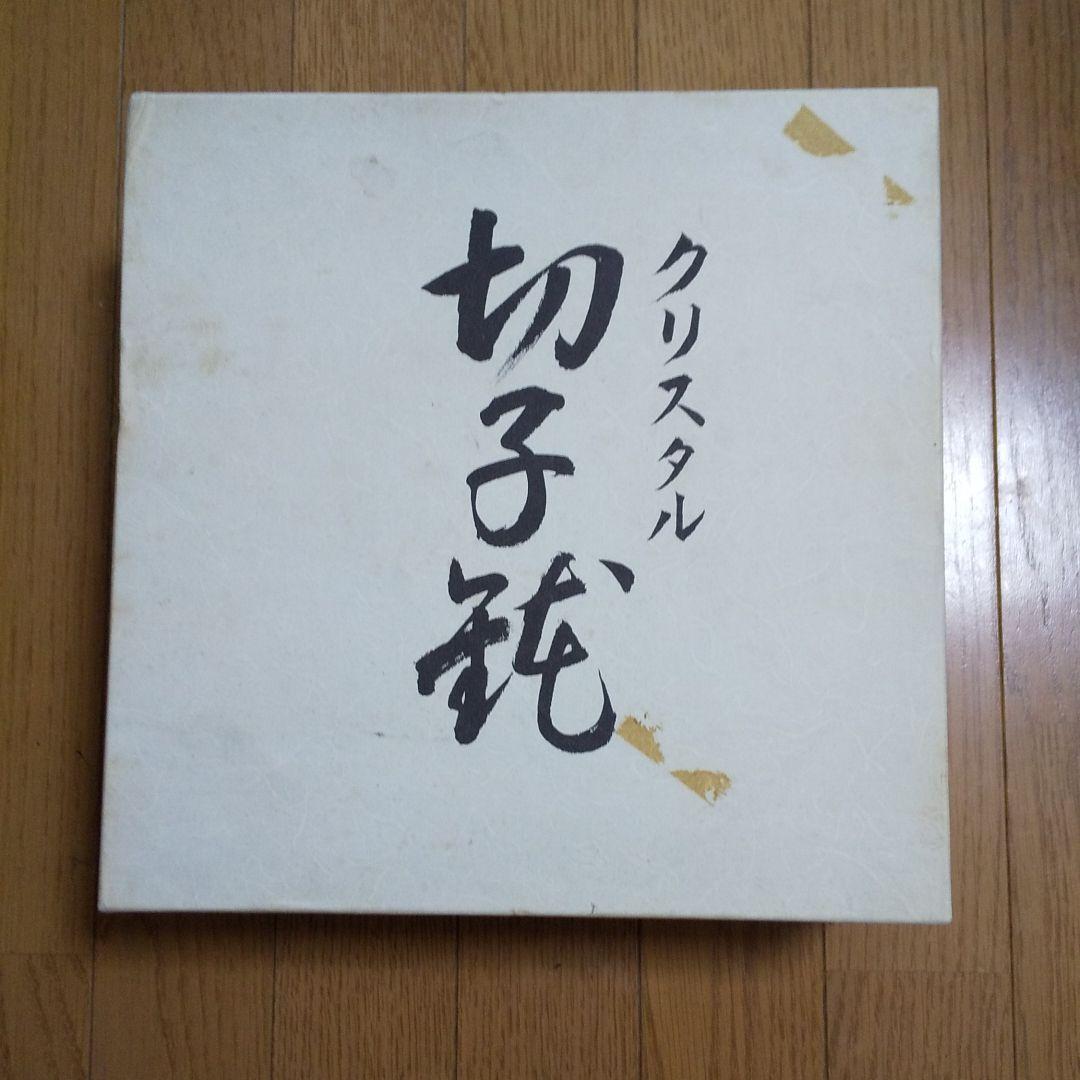 クリスタル
切子鉢